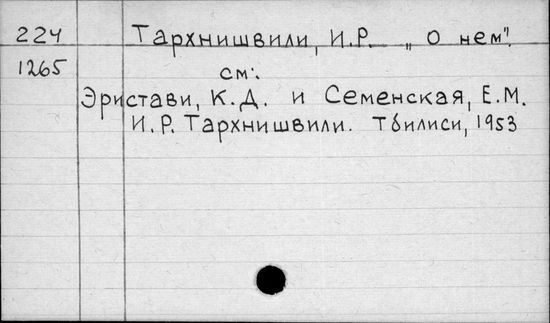 224 Тархнишвили, И.Р. „о нем".
1265 см:.
Эристави, К.Д. и Семенская, Е.М.
И.Р. Тархнишвили. Тбилиси, 1953